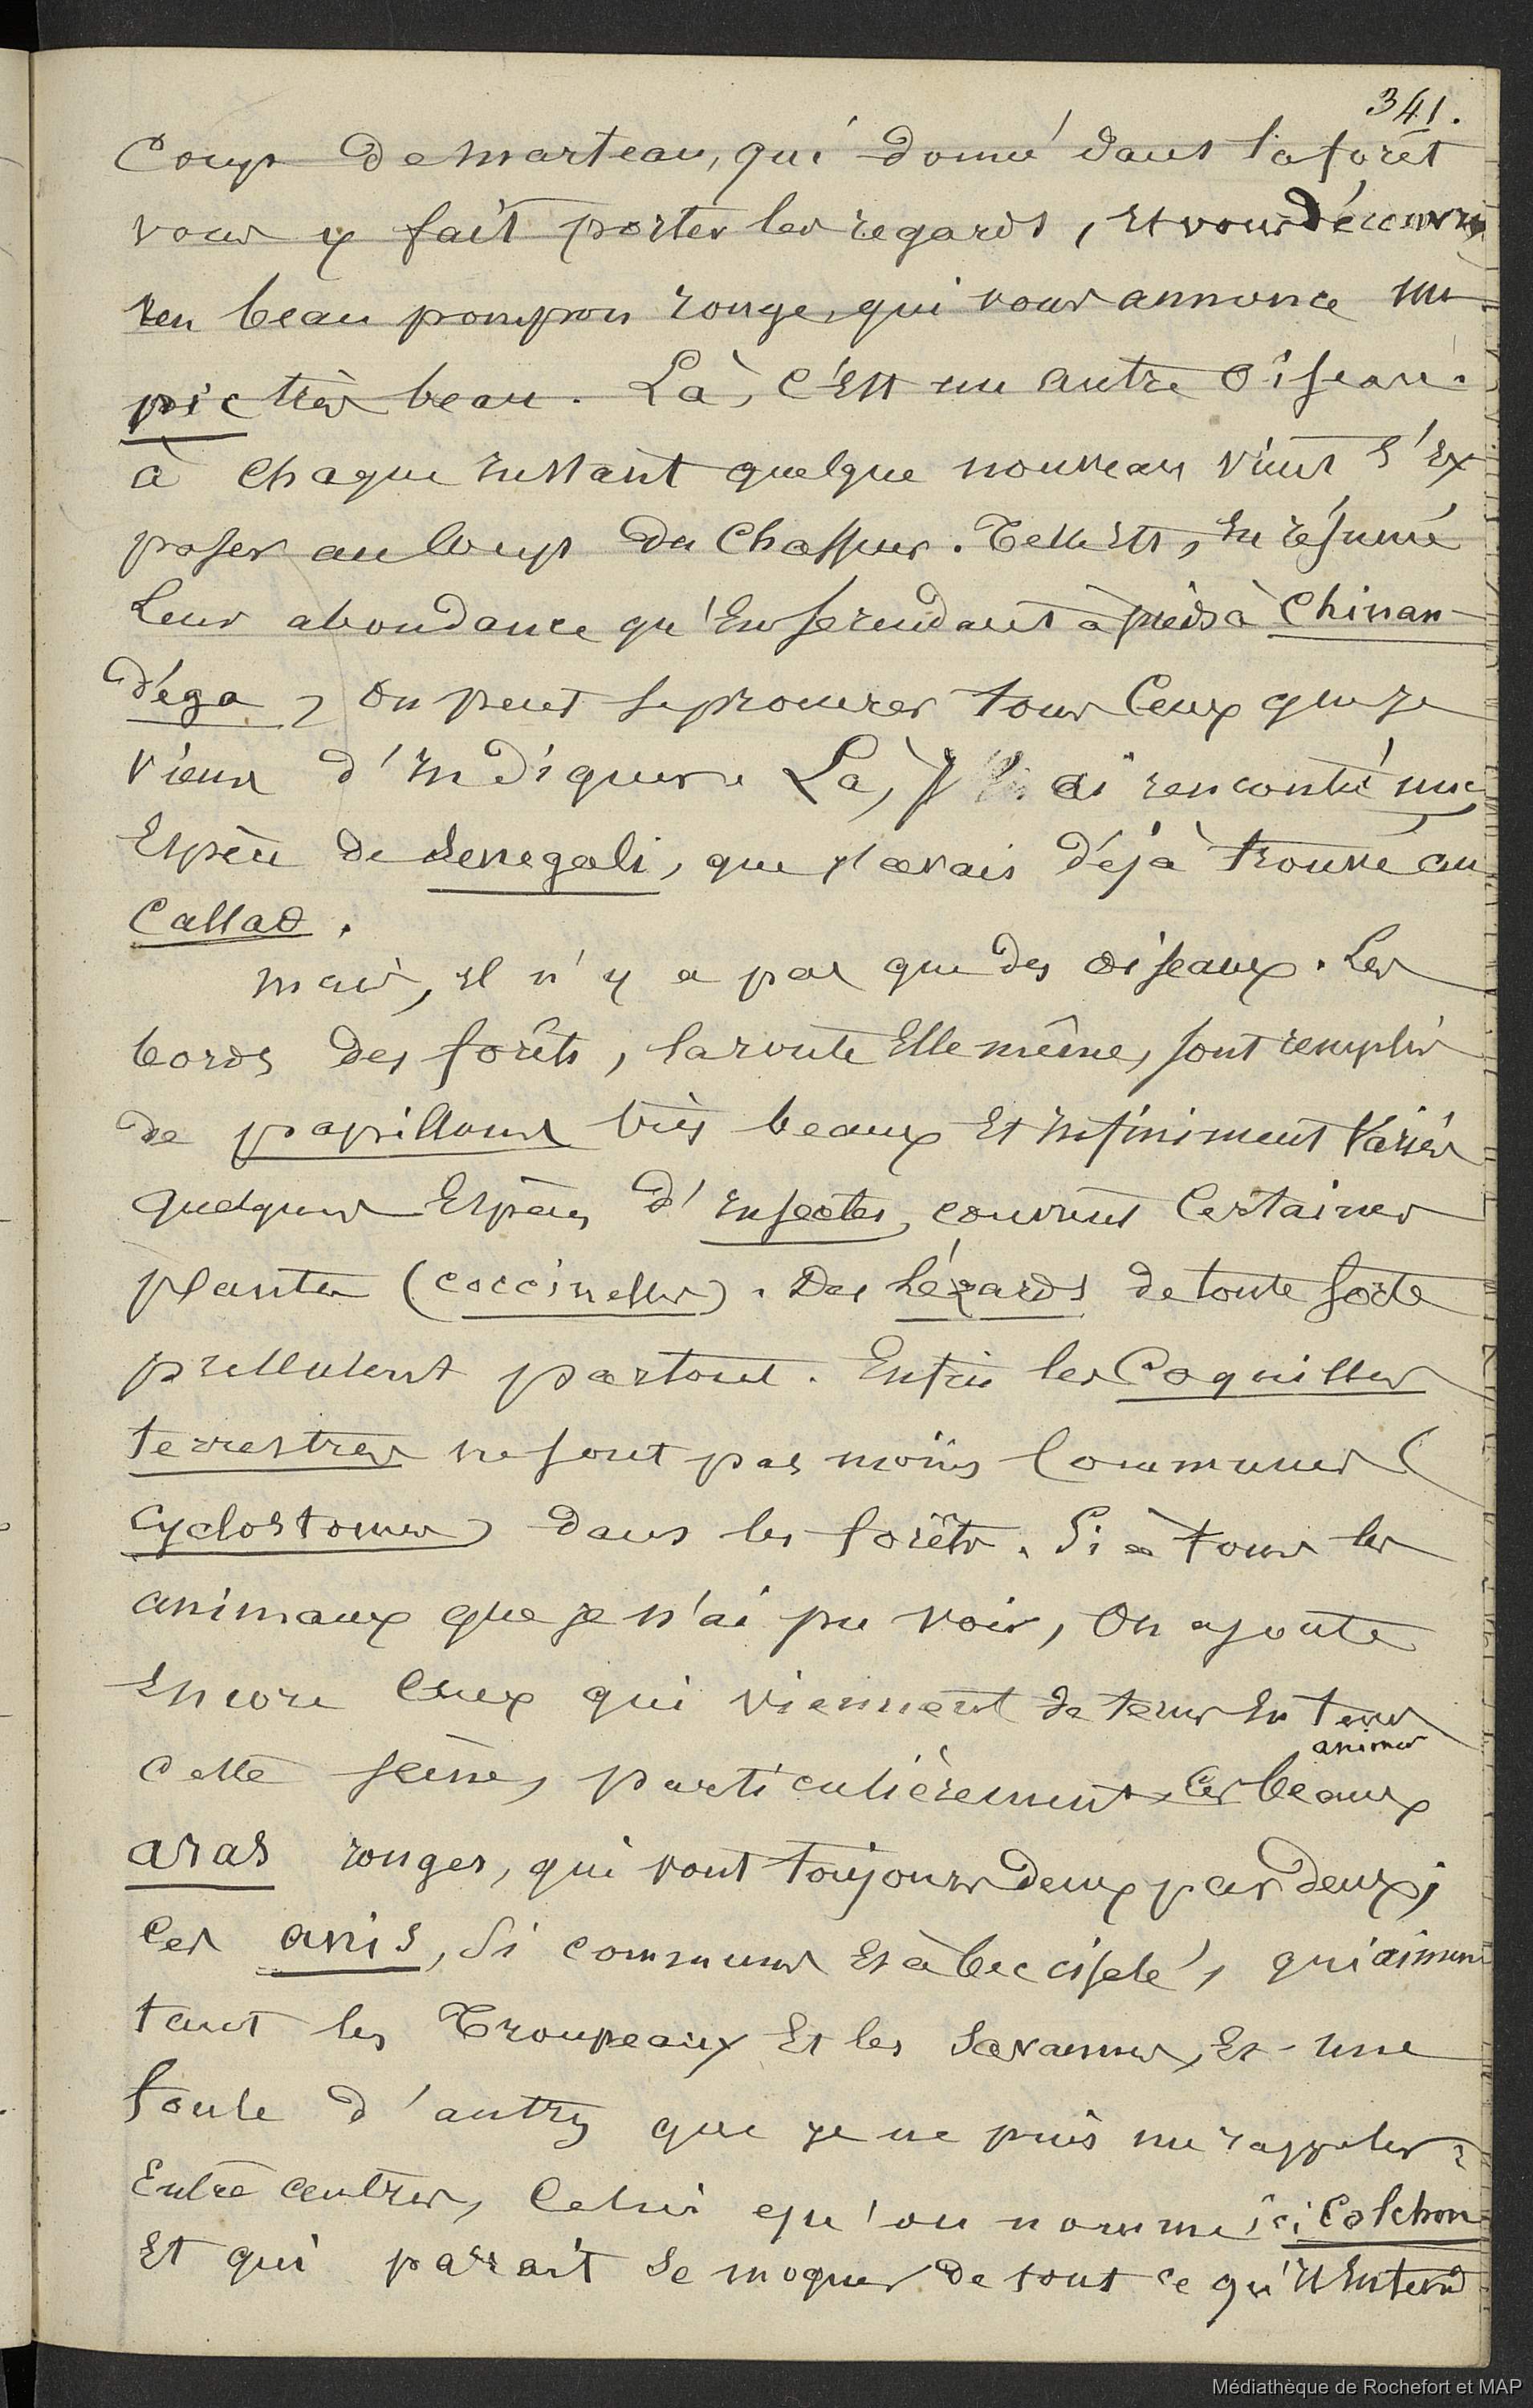 341.
Coup de marteau, qui donné dans la forêt
vous y fait porter les regards, et vous découvrez
un beau pompon rouge, qui vous annonce un
pic très beau. Là, c'est un autre oiseau.
à chaque instant quelque nouveau vient s'ex
poser au coup du chasseur. Telle est, en résumé
leur abondance qu'en se rendant à pieds à Chinan-
déga, on peut se procurer tous ceux que je
viens d'indiquer. Là, j' ai rencontré une
Espèce de Senegali, que j'avais déjà trouvé au
Callao.
mais, il n'y a pas que des oiseaux. Les
bords des forêts, la route Elle même, sont remplis
de papillons très beaux et infiniment variés
quelques Espèces d'insectes, couvrent certaines
plantes (coccinelles). Des lézards de toute sorte
pullulent partout. Enfin les Coquilles
terrestres ne sont pas moins communes (
cyclostomes) dans les forêts. Si à tous les
animaux que je n'ai pu voir, on ajoute
Encore ceux qui viennent de tems En tems
animer
cette scène, particulièrement, ces beaux
aras rouges, qui vont toujours deux par deux;
ces anis, si communs et à bec ciselé, qui aiment
tant les Troupeaux et les Savannes, et une
foule d'autres que je ne puis me rappeler;
Entre autres, Celui qu'on nomme ici Colchon
Et qui parait se moquer de tout ce qu'il Entend
Médiathèque de Rochefort et MAP